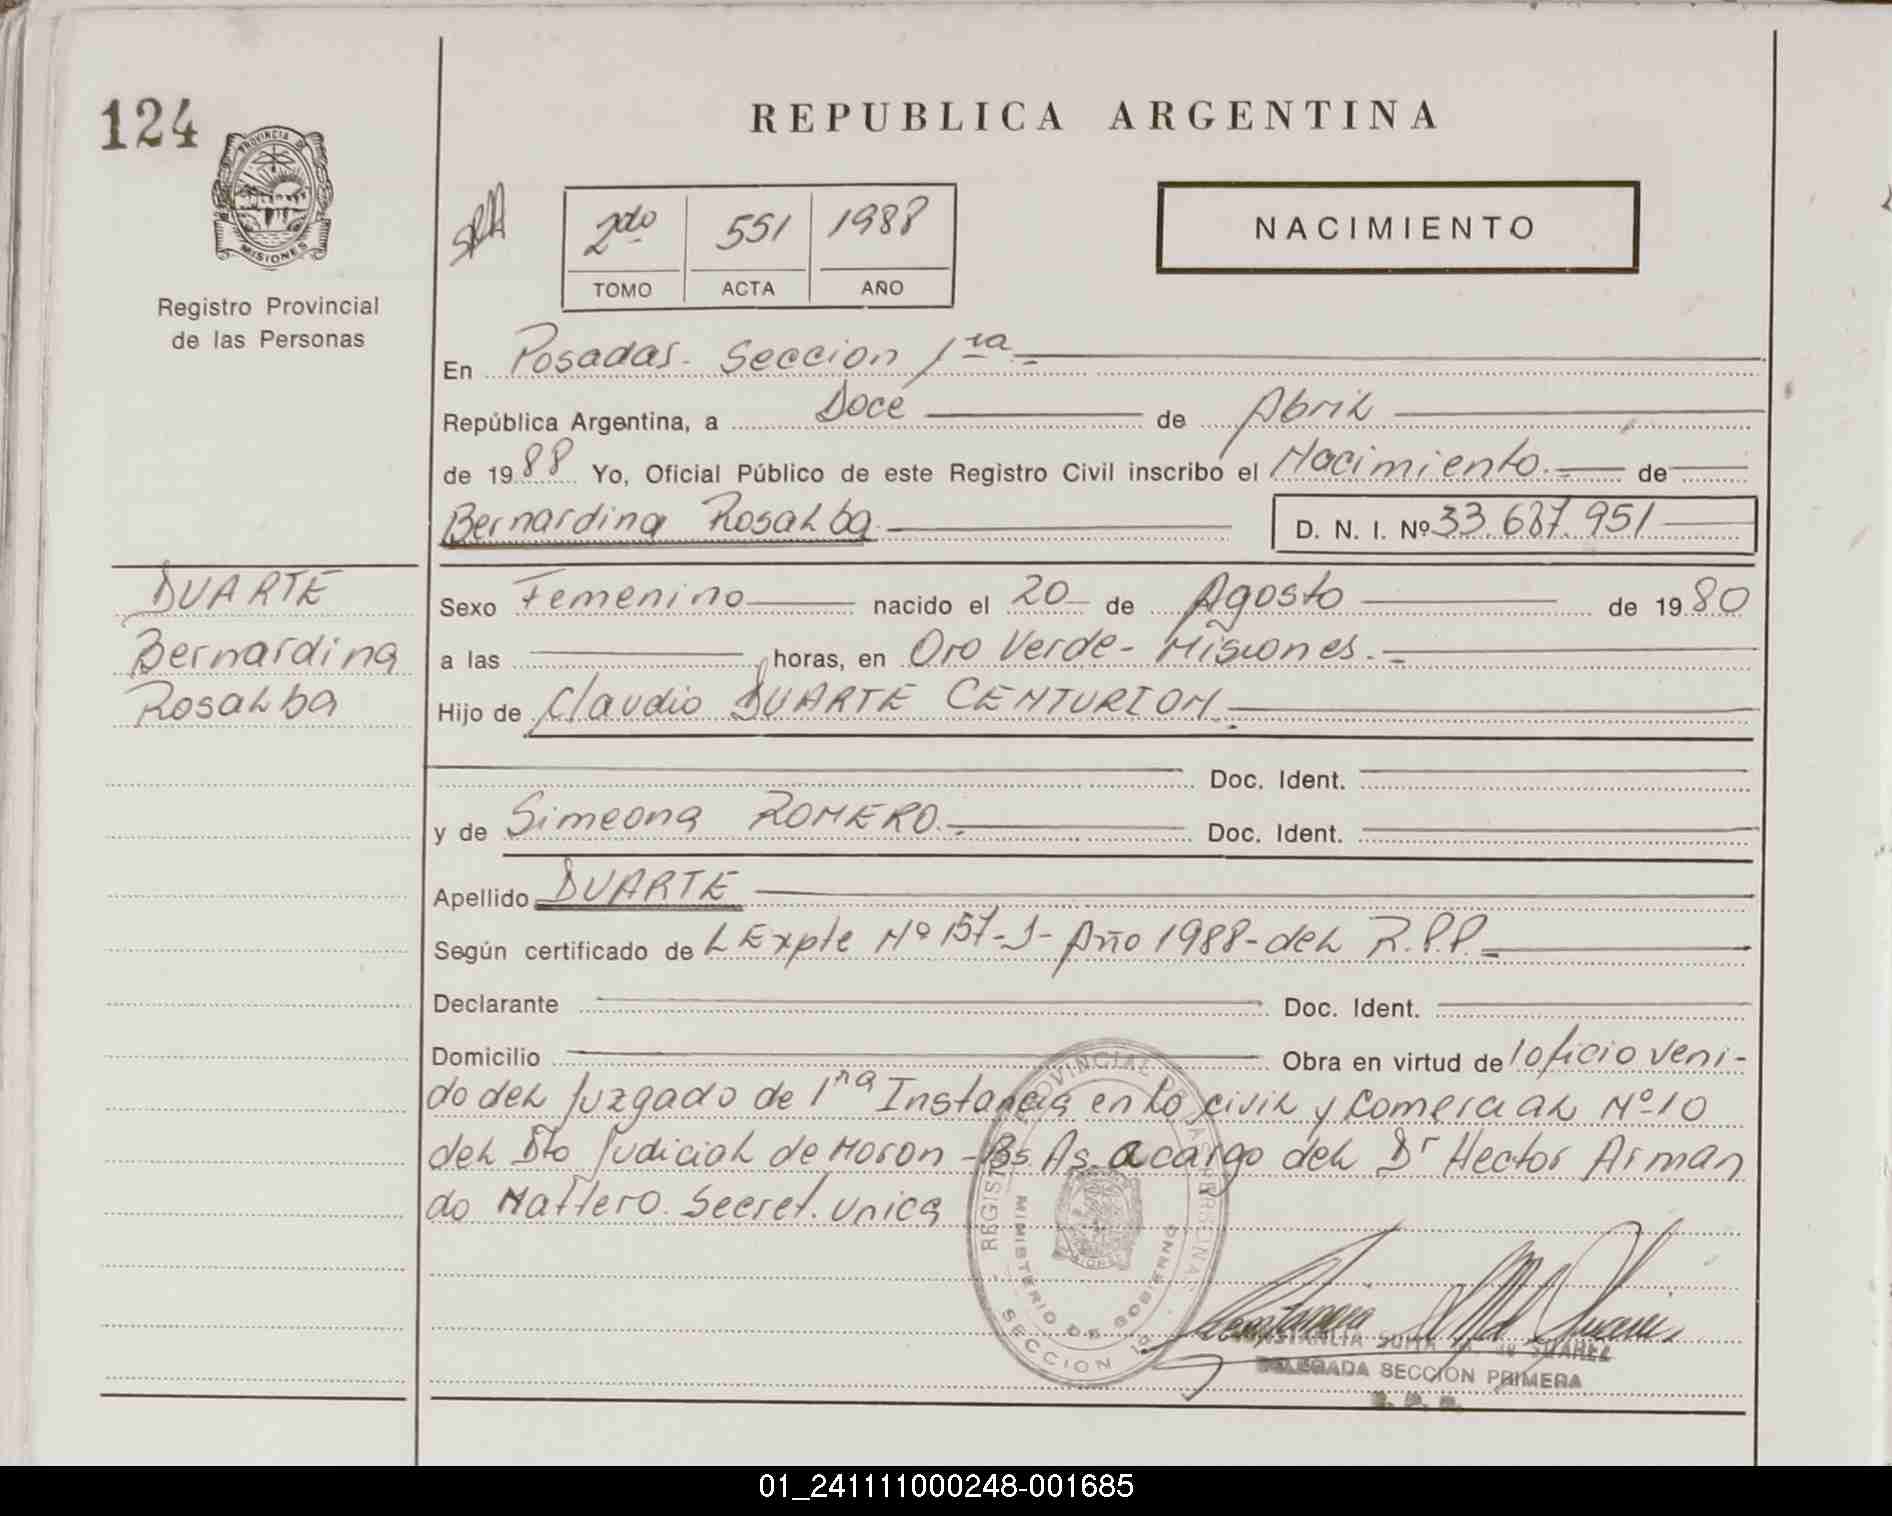 124
PROVINCIA DE
MISIONES
Registro Provincial
de las Personas
REPUBLICA ARGENTINA
2do 551 1988
TOMO ACTA AÑO
NACIMIENTO
En Posadas. Seccion 1ra
República Argentina, a Doce de Abril
de 1988 Yo, Oficial Público de este Registro Civil inscribo el Nacimiento de
Bernardina Rosalba D. N. I. Nº 33.687.951
DUARTE
Bernardina
Rosalba
Sexo Femenino nacido el 20 de Agosto de 1980
a las horas, en Oro Verde - Misiones.
Hijo de Claudio DUARTE CENTURION
Doc. Ident.
y de Simeona ROMERO. Doc. Ident.
Apellido DUARTE
Según certificado de l Expte Nº 157-J- Año 1988 - del R.P.P.
Declarante Doc. Ident.
Domicilio Obra en virtud de l oficio veni-
do del Juzgado de 1ra Instancia en lo civil y Comercial Nº 10
del Dto Judicial de Moron - Bs. As. a cargo del Dr Hector Arman
do Mattero. Secret. Unica
REGISTRO PROVINCIAL DE LAS PERSONAS
MINISTERIO DE GOBIERNO
SECCION 1ra
DELEGADA SECCION PRIMERA
R. P. P.
01_241111000248-001685